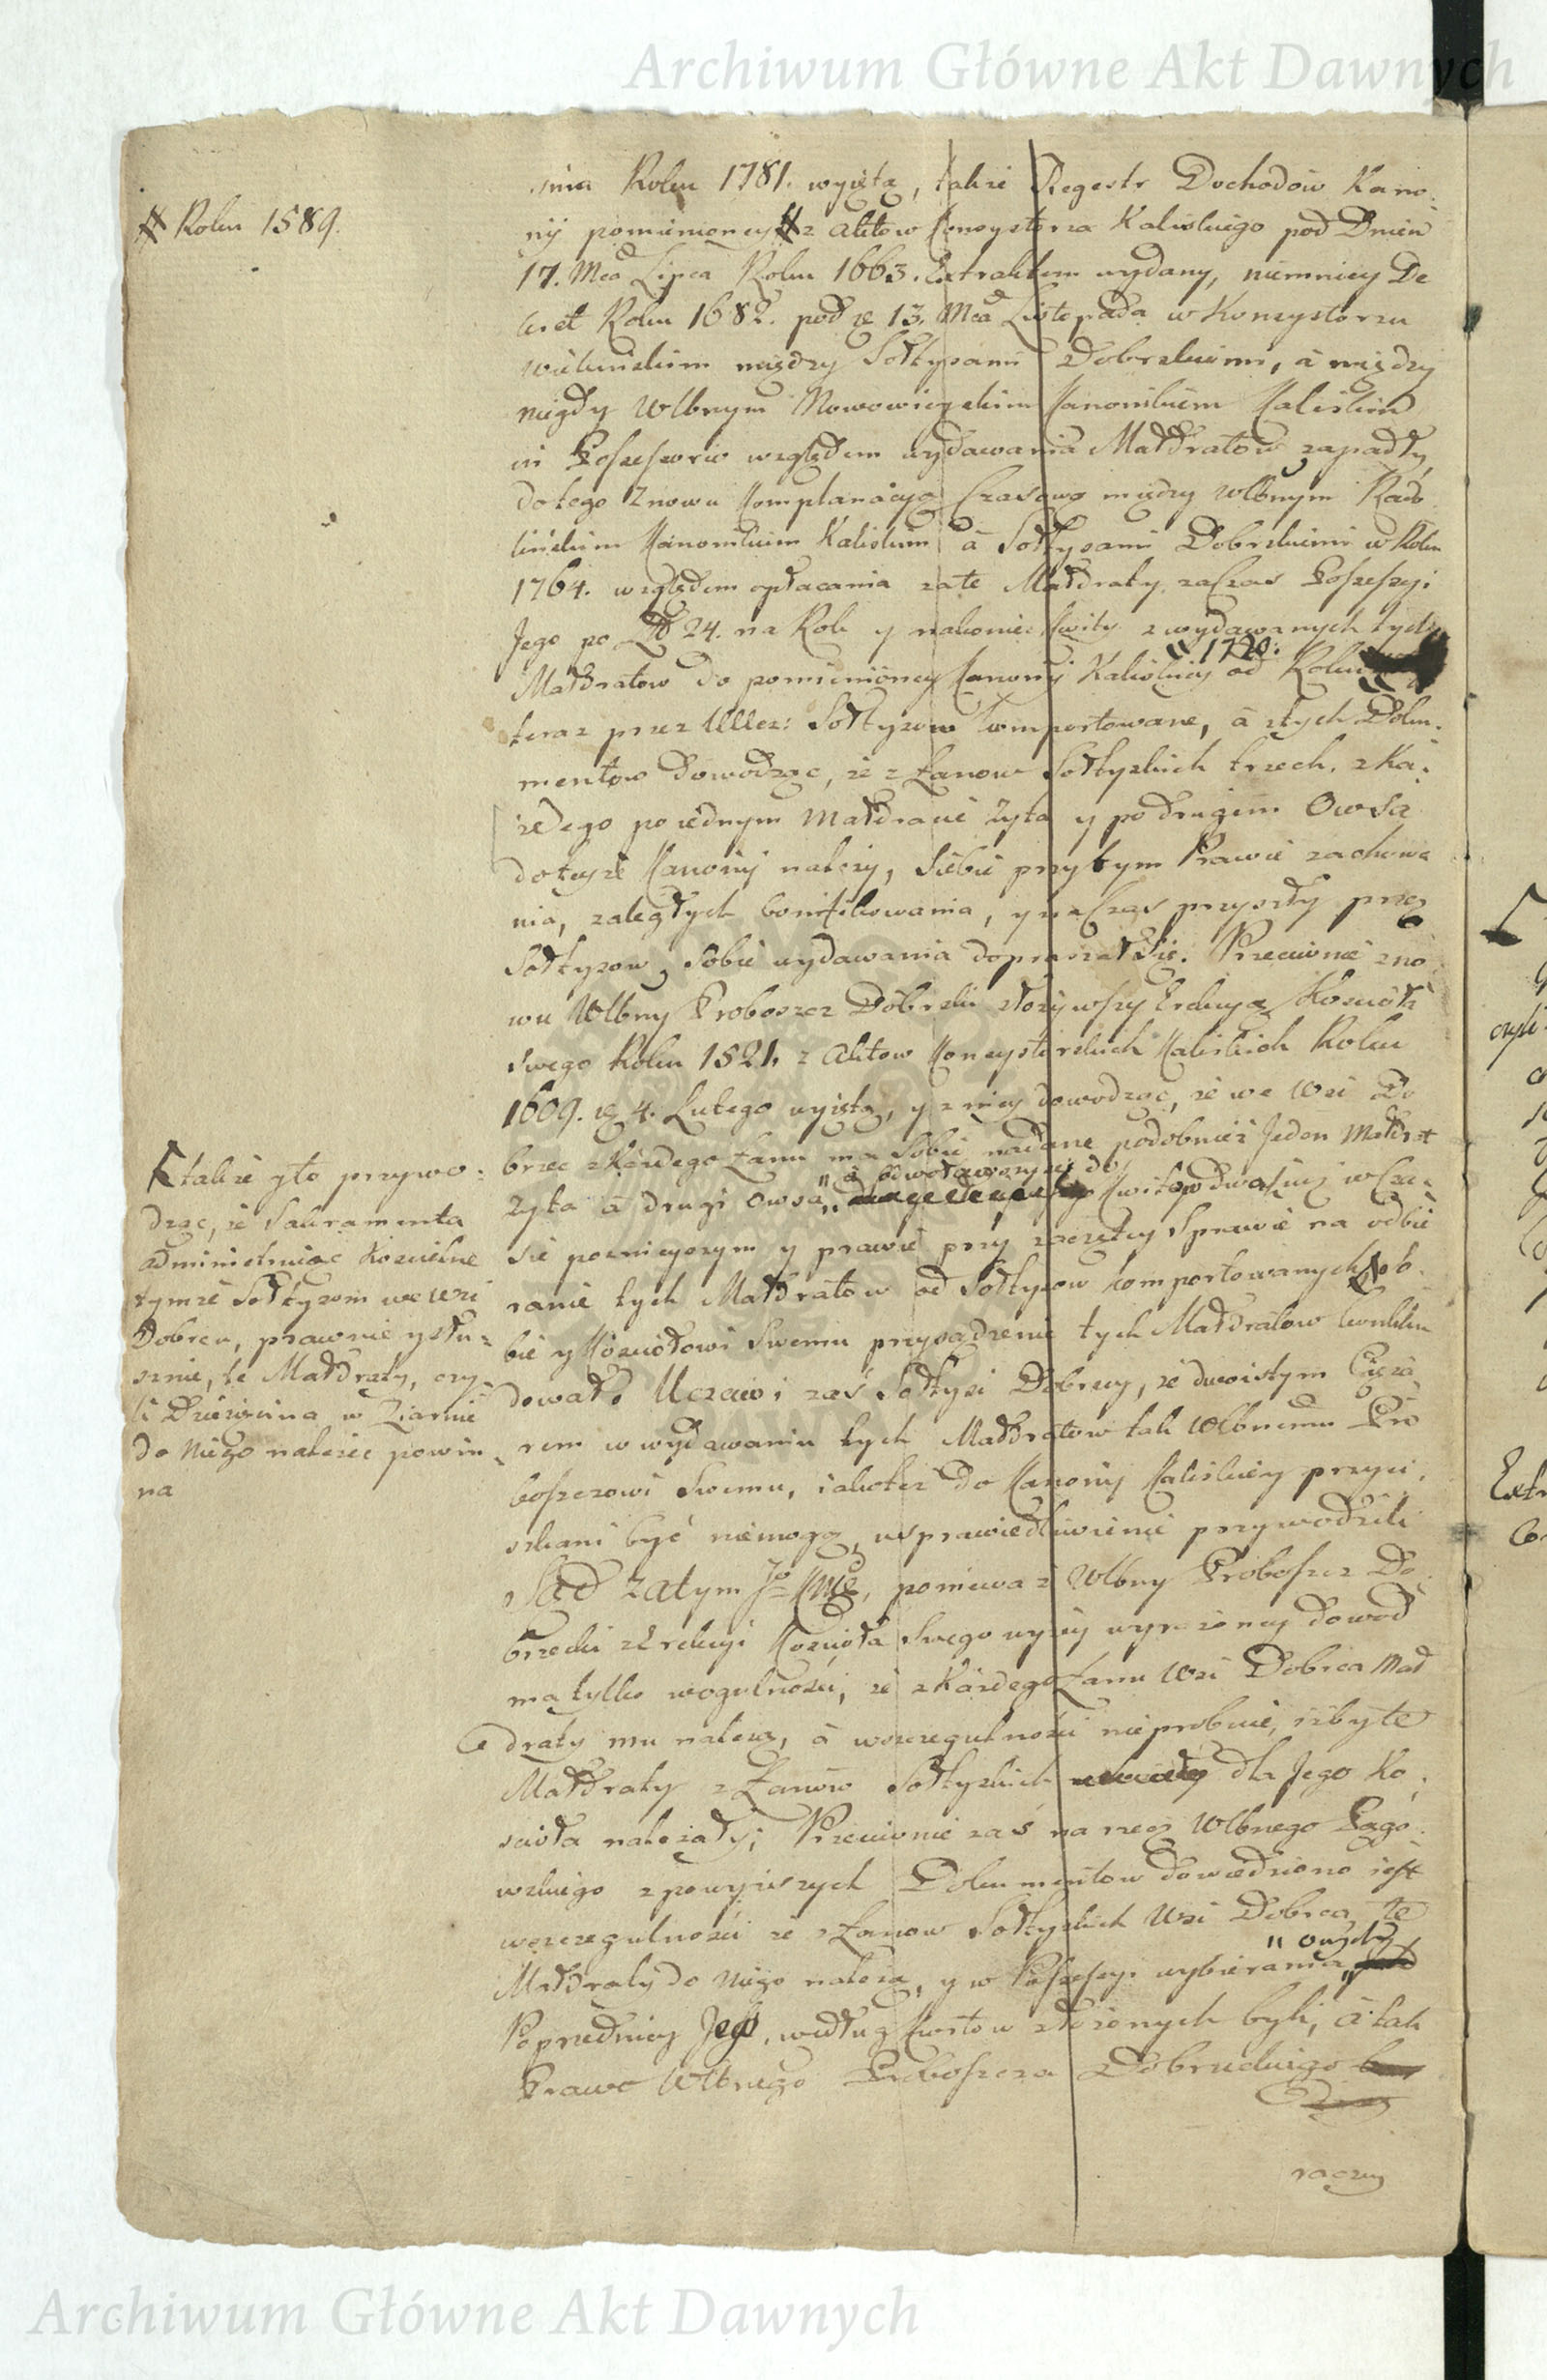 Archiwum Główne Akt Dawnych
śnia Roku 1781. wyięta, także Regestr Dochodów Kano,
nij pomienioney # z Aktow Konsystorza Kaliskiego pod Dniem
17. Mca Lipca Roku 1663. Extraktem wydany, niemniey De
kret Roku 1682. pod ie 13. Mca Listopada w Konsystorzu
między Sołtysami Dobrskiemi, à między
niegdy Wlbnym Nowowieyskim Kanonikiem Kaliskim
in Possessorio względem wydawania Małdratow zapadły,
do tego znowu Komplanacyą Czasową między Wlbnym Rado
lińskim Kanonikiem Kaliskim à Sołtysami Dobrskiemi w Roku
1764. względem opłacania za te Małdraty za Czas Possessyi
Jego po Zł 24. na Rok y nakoniec Kwity z wydawanych tych
Małdratow do pomienioney Kanonij Kaliskiey od Roku
" 1720.
teraz przez Sołtysow komportowane, à z tych Doku,
mentow dowodząc, że z Łanow Sołtyskich trzech, z Ka,
żdego po iednym Małdracie Żyta y po drugim Owsa
do teyże Kanonij należy, Siebie przy tym Prawie zachowa
nia, zaległych bonifikowania, y na Czas przyszły przez
Sołtysow, Sobie wydawania dopraszał Się. Przeciwnie zno
wu Wlbny Proboszcz Dobrski złożywszy Erekcyą Kościoła
swego Roku 1521. z Aktow Konsystorskich Kaliskich Roku
1609. 4. Lutego wyiętą, y z niey dowodząc, że we Wsi Do
brzec z Każdego Łanu ma Sobie nadane podobnież Jeden Małdrat
Żyta à drugi Owsa, "
" à odwoławszy się do
Kwitow dwa iuż w Cza,
sie poznieyszym y prawie przy zaczętey Sprawie na odbie
ranie tych Małdratow od Sołtysow komportowanych So,
bie y Kościołowi Swemu przysądzenie tych Małdratow konklu
dował. Uczciwi zaś Sołtysi Dobrscy, że dwoistym Cięża,
rem w wydawaniu tych Małdratow tak Wlbnemu Pro
boszczowi Swemu, iakoteż do Kanonij Kaliskiey przyci,
skani być niemogą, usprawiedliwienie przywodzili
Sąd zatym Jo KMci, ponieważ Wlbny Proboszcz Do,
brzecki z Erekcyi Kościoła Swego wyżey wyrażoney dowod
ma tylko w ogulności, że z Każdego Łanu Wsi Dobrca Mał
draty mu należą, à w szczegulności nieprobuie, iżby te
Małdraty z Łanow Sołtyskich dla Jego Ko,
ścioła należały; Przeciwnie zaś na rzecz Wlbnego Pągo,
wskiego z powyższych Dokumentow dowiedziono iest
w szczegulności że z Łanow Sołtyskich Wsi Dobrca te
Małdraty do Niego należą, y w Possessyi wybierania "
" onych
Poprzednicy Jego, według Kwitow złożonych byli, à tak
Prawo Wlbnego Proboszcza Dobrzeckiego
raczey
# Roku 1589.
także y to przywo,
dząc, że Sakramenta
Administruiąc Kościelne
tymże Sołtysom we Wsi
Dobrcu, prawnie y słu,
sznie, te Małdraty, czy
li Dziesięcina w Ziarnie
do Niego należeć powin,
na
Extr
Archiwum Główne Akt Dawnych